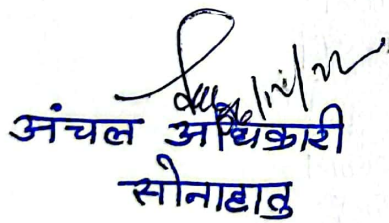 अंचल अधिकारी
सोनाहातु